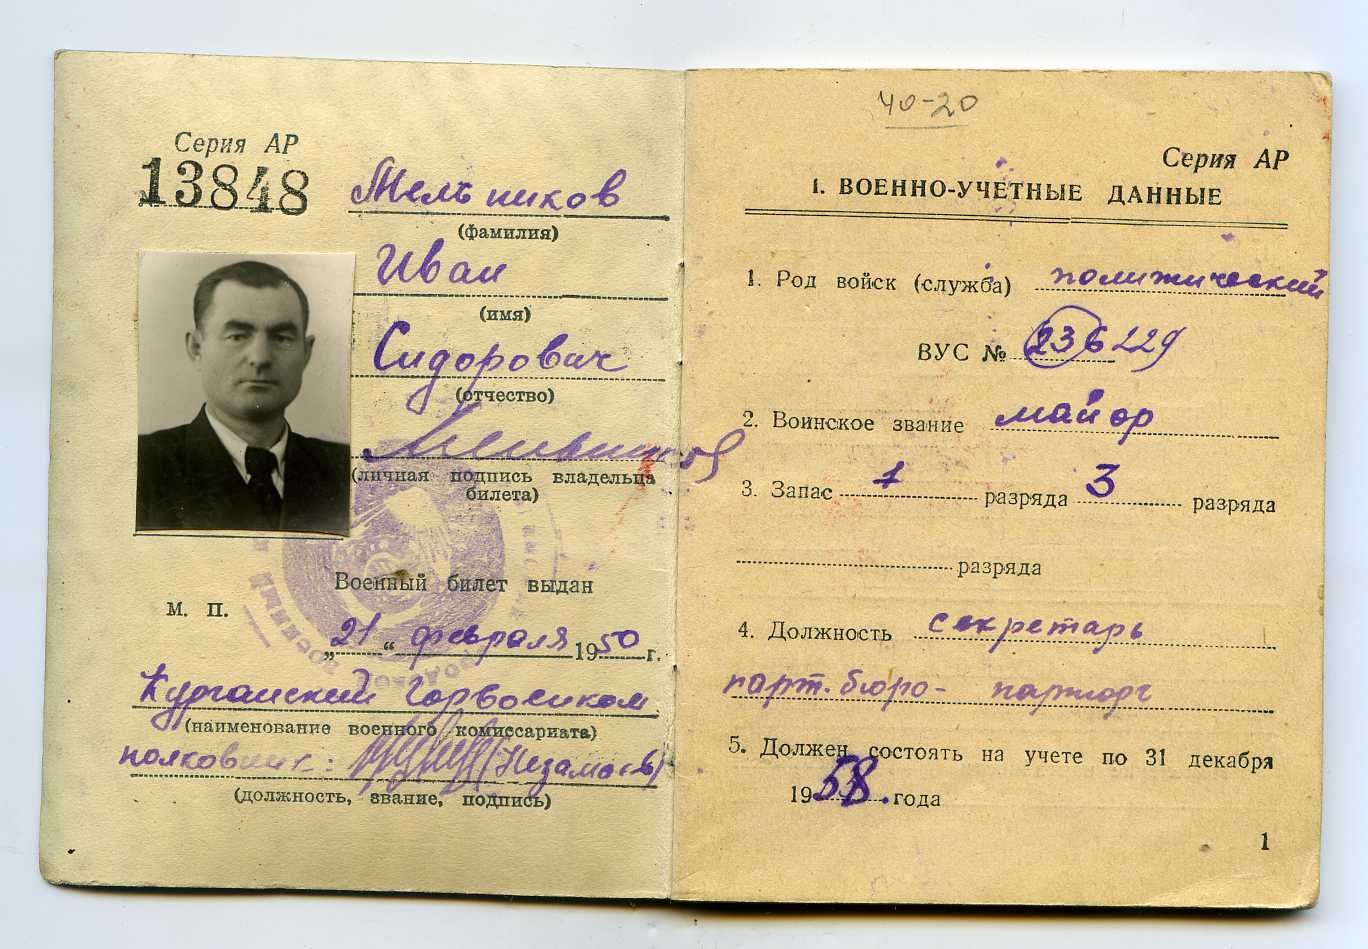 Серия АР
13848
Мельников
(фамилия)
Иван
(имя)
Сидорович
(отчество)
Мельников
(личная подпись владельца
билета)
Военный билет выдан
М. П.
„21“ февраля 1950 г.
Курганский Горвоенком
(наименование военного комиссариата)
полковник:
(должность, звание, подпись)
40-20
Серия АР
I. ВОЕННО-УЧЕТНЫЕ ДАННЫЕ
1. Род войск (служба) политический
ВУС № 236229
2. Воинское звание майор
3. Запас 1 разряда 3 разряда
разряда
4. Должность секретарь
парт. бюро- парторг
5. Должен состоять на учете по 31 декабря
1958. года
1